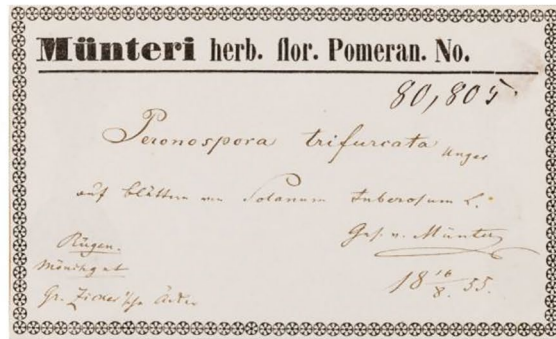 Münteri herb. flor. Pomeran. No.
80,805.
Peronospora trifurcata Unger
auf Blättern von Solanum tuberosum L.
Ges. v. Münter
Rügen.
18 16/8. 55.
Mönchgut
Gr. Zicker'sche Äcker